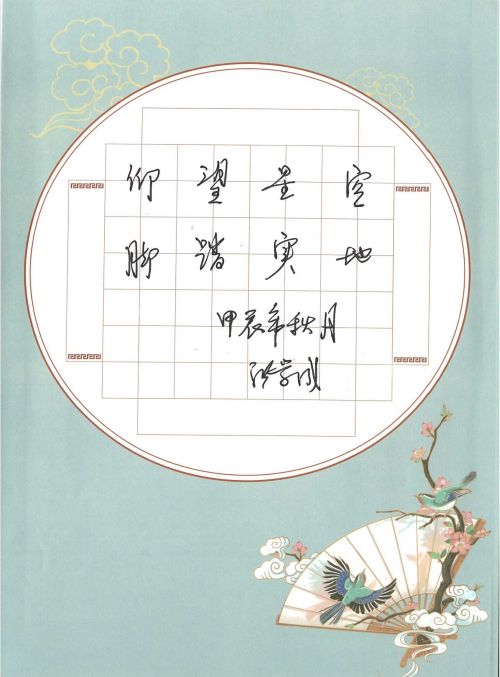 仰望星空
脚踏实地
甲辰年秋月